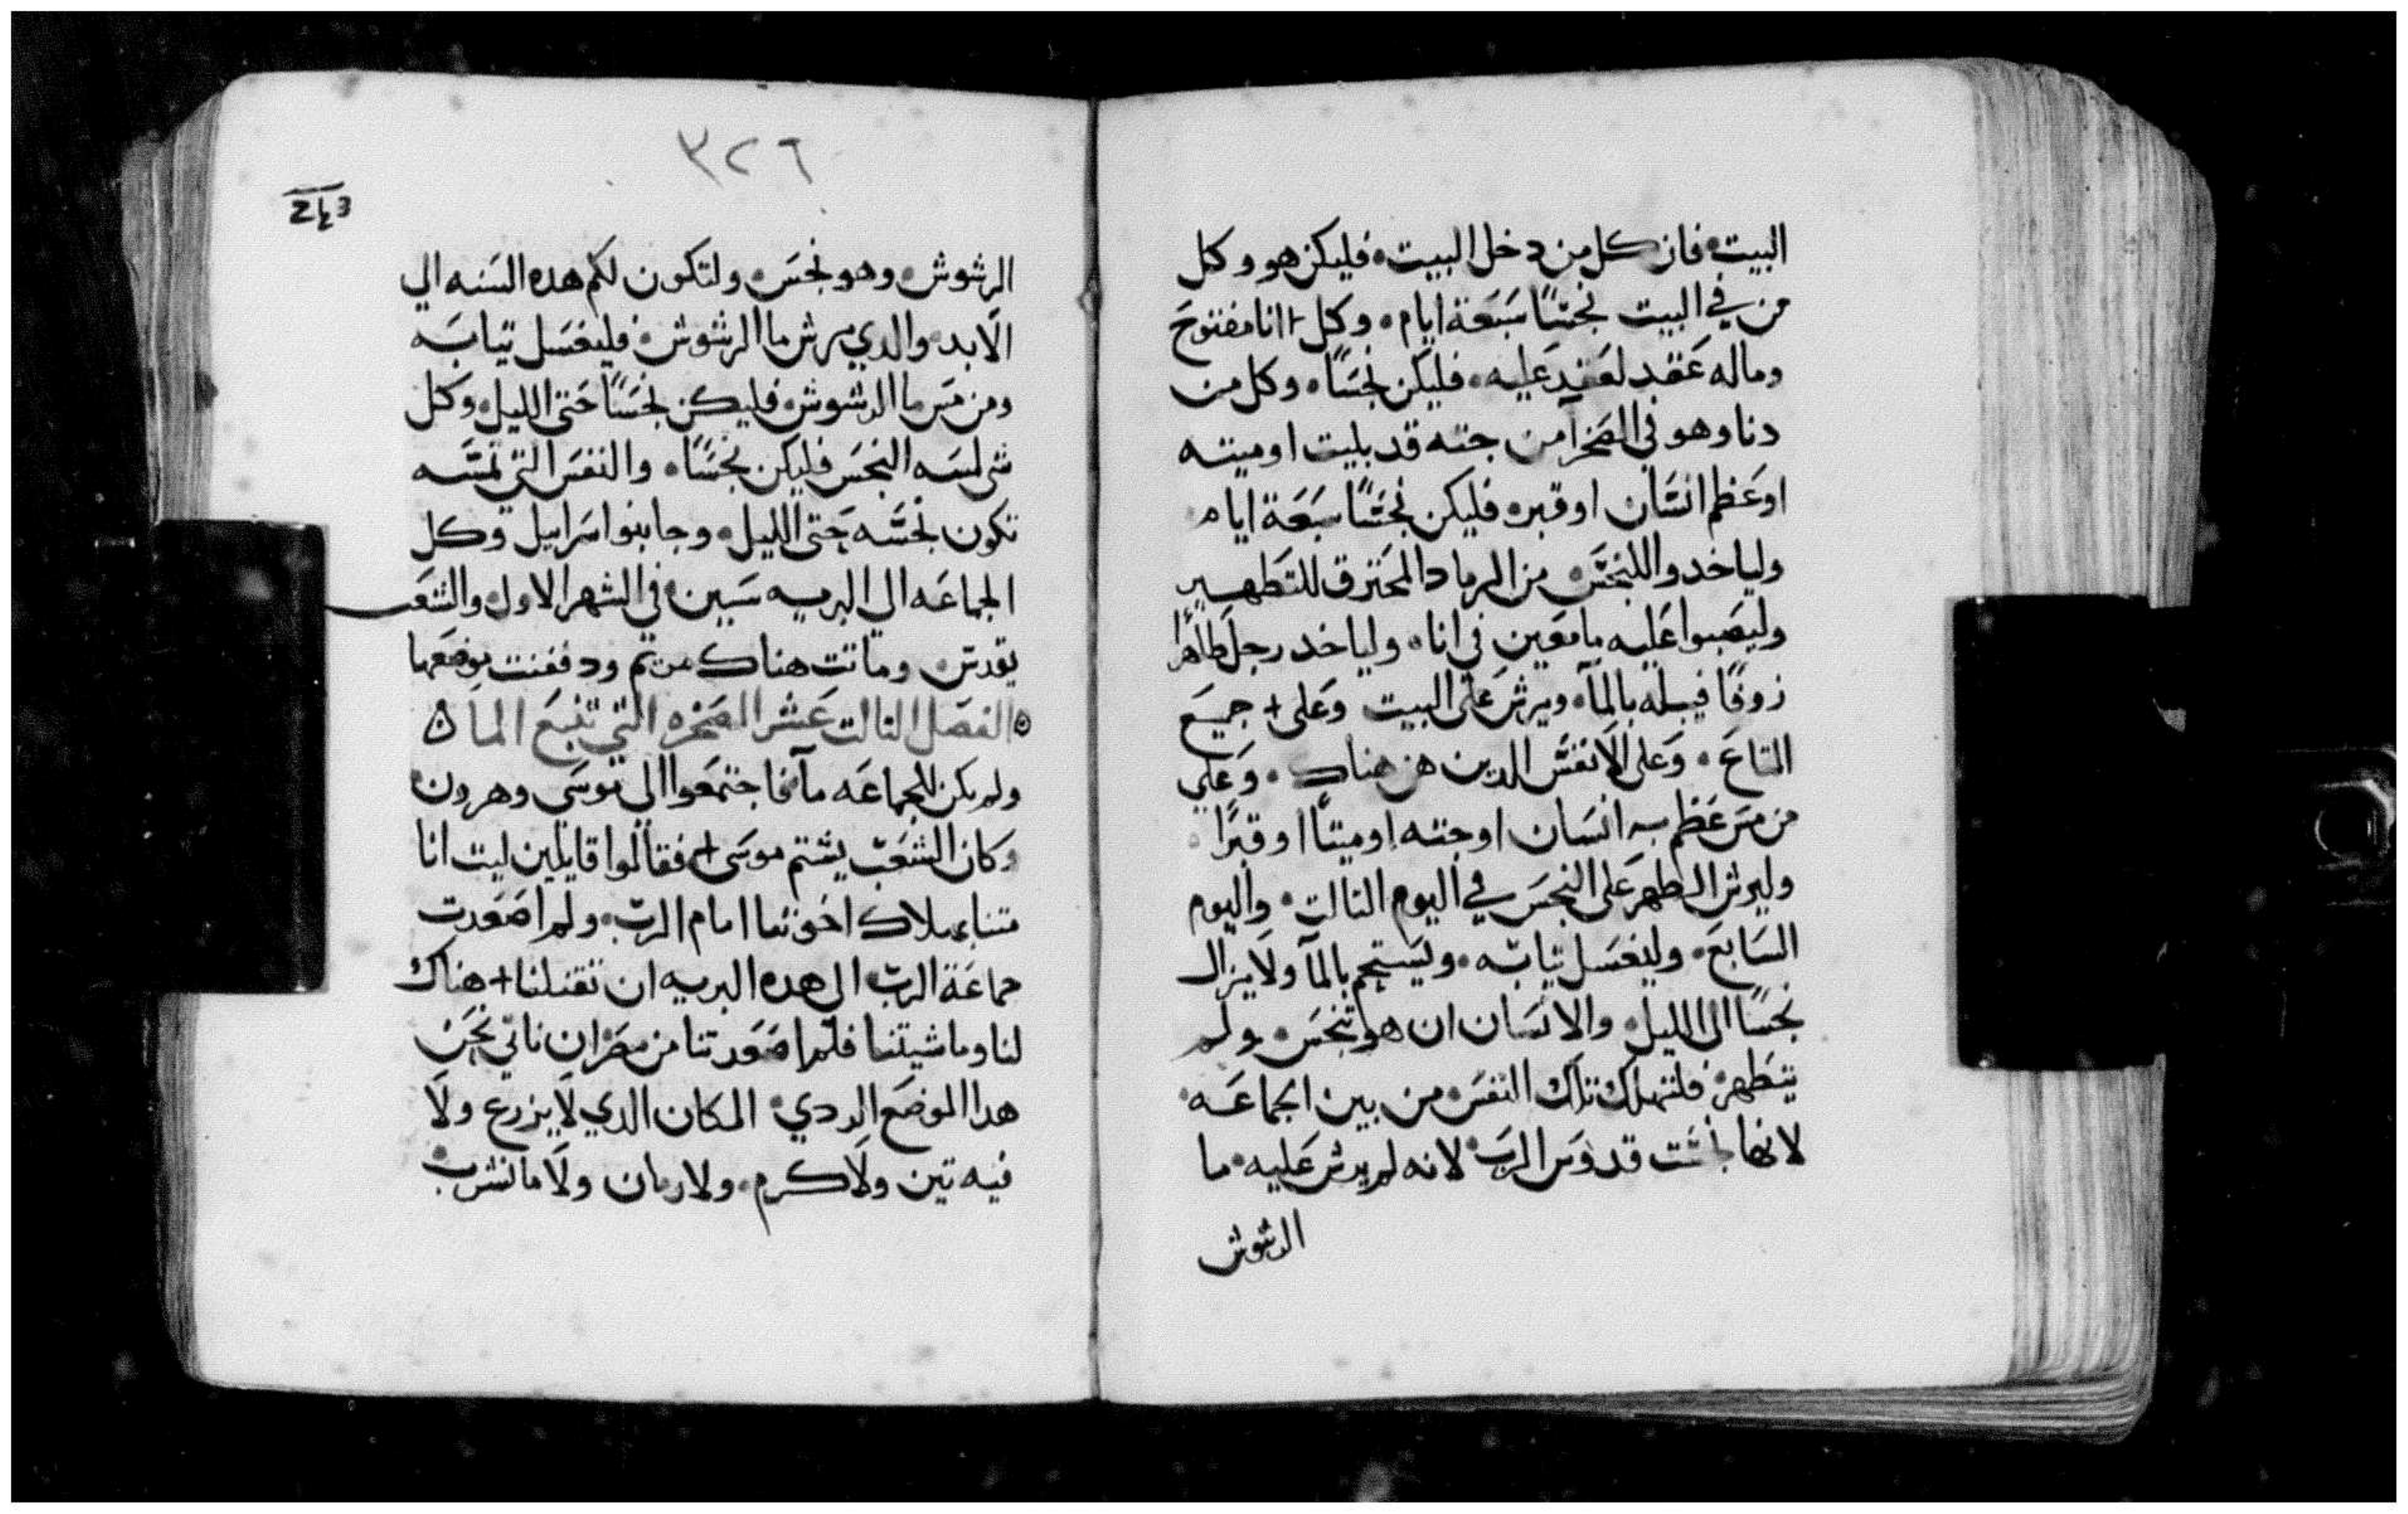 البيت فان كل من دخل البيت فليكن هو وكل
من في البيت نجسًا سبعة ايام وكل انا مفتوح
وماله عقد لعقد عليه فليكن نجسًا وكل من
دنا وهو في الصحرا من جته قد بليت او ميته
او عظم انسان او قبره فليكن نجسًا سبعة ايام
ولياخدوا للنجس من الرماد المحترق للتطهير
وليصبوا عليه ما معين في انا ولياخد رجل طاهرا
زوفا فيبله بالمآ ويرش على البيت وعلى جميع
التاع وعلى الانفس الدين هن هناك وعلي
من مس عظم به انسان او جته او ميتا او قبرا
وليرش الطهر على النجس في اليوم التالت واليوم
السابع وليغسل تيابه ويستحم بالمآ ولا يزال
نجسًا الى الليل والانسان ان هو تنجس ولم
يتطهر فلتهلك تلك النفس من بين الجماعه
لانها قدوس الرب لانه لم يرش عليه ما
الرشوش
٣٢٦
الرشوش وهو نجس ولتكون لكم هده السنه الي
الابد والدي يرش ما الرشوش فليغسل تيابه
ومن مس ما الرشوش فليكن نجسًا حتى الليل وكل
شي لمسه النجس فليكن نجسًا والنفس التي تمسه
تكون نجسه حتى الليل وجا بنوا اسراييل وكل
الجماعه الي البريه سين في الشهر الاول والشعب
بقدس وماتت هناك مريم ودففنت موضعها
الفصل التالت عشر الصخره التي تنبع الما
ولم يكن للجماعه مآ فاجتمعوا الي موسي وهرون
وكان الشعب يشتم موسى فقالوا قايلين ليت انا
متنا بهلاك اخوتنا امام الرب ولم اصعدت
جماعة الرب الى هده البريه ان تقتلنا هناك
لنا وماشيتنا فلم اصعدتنا من مصر ان ناتي نحن
هدا الموضع الردي المكان الدي لا يزرع ولا
فيه تين ولا كرم ولا رمان ولا ما نشرب